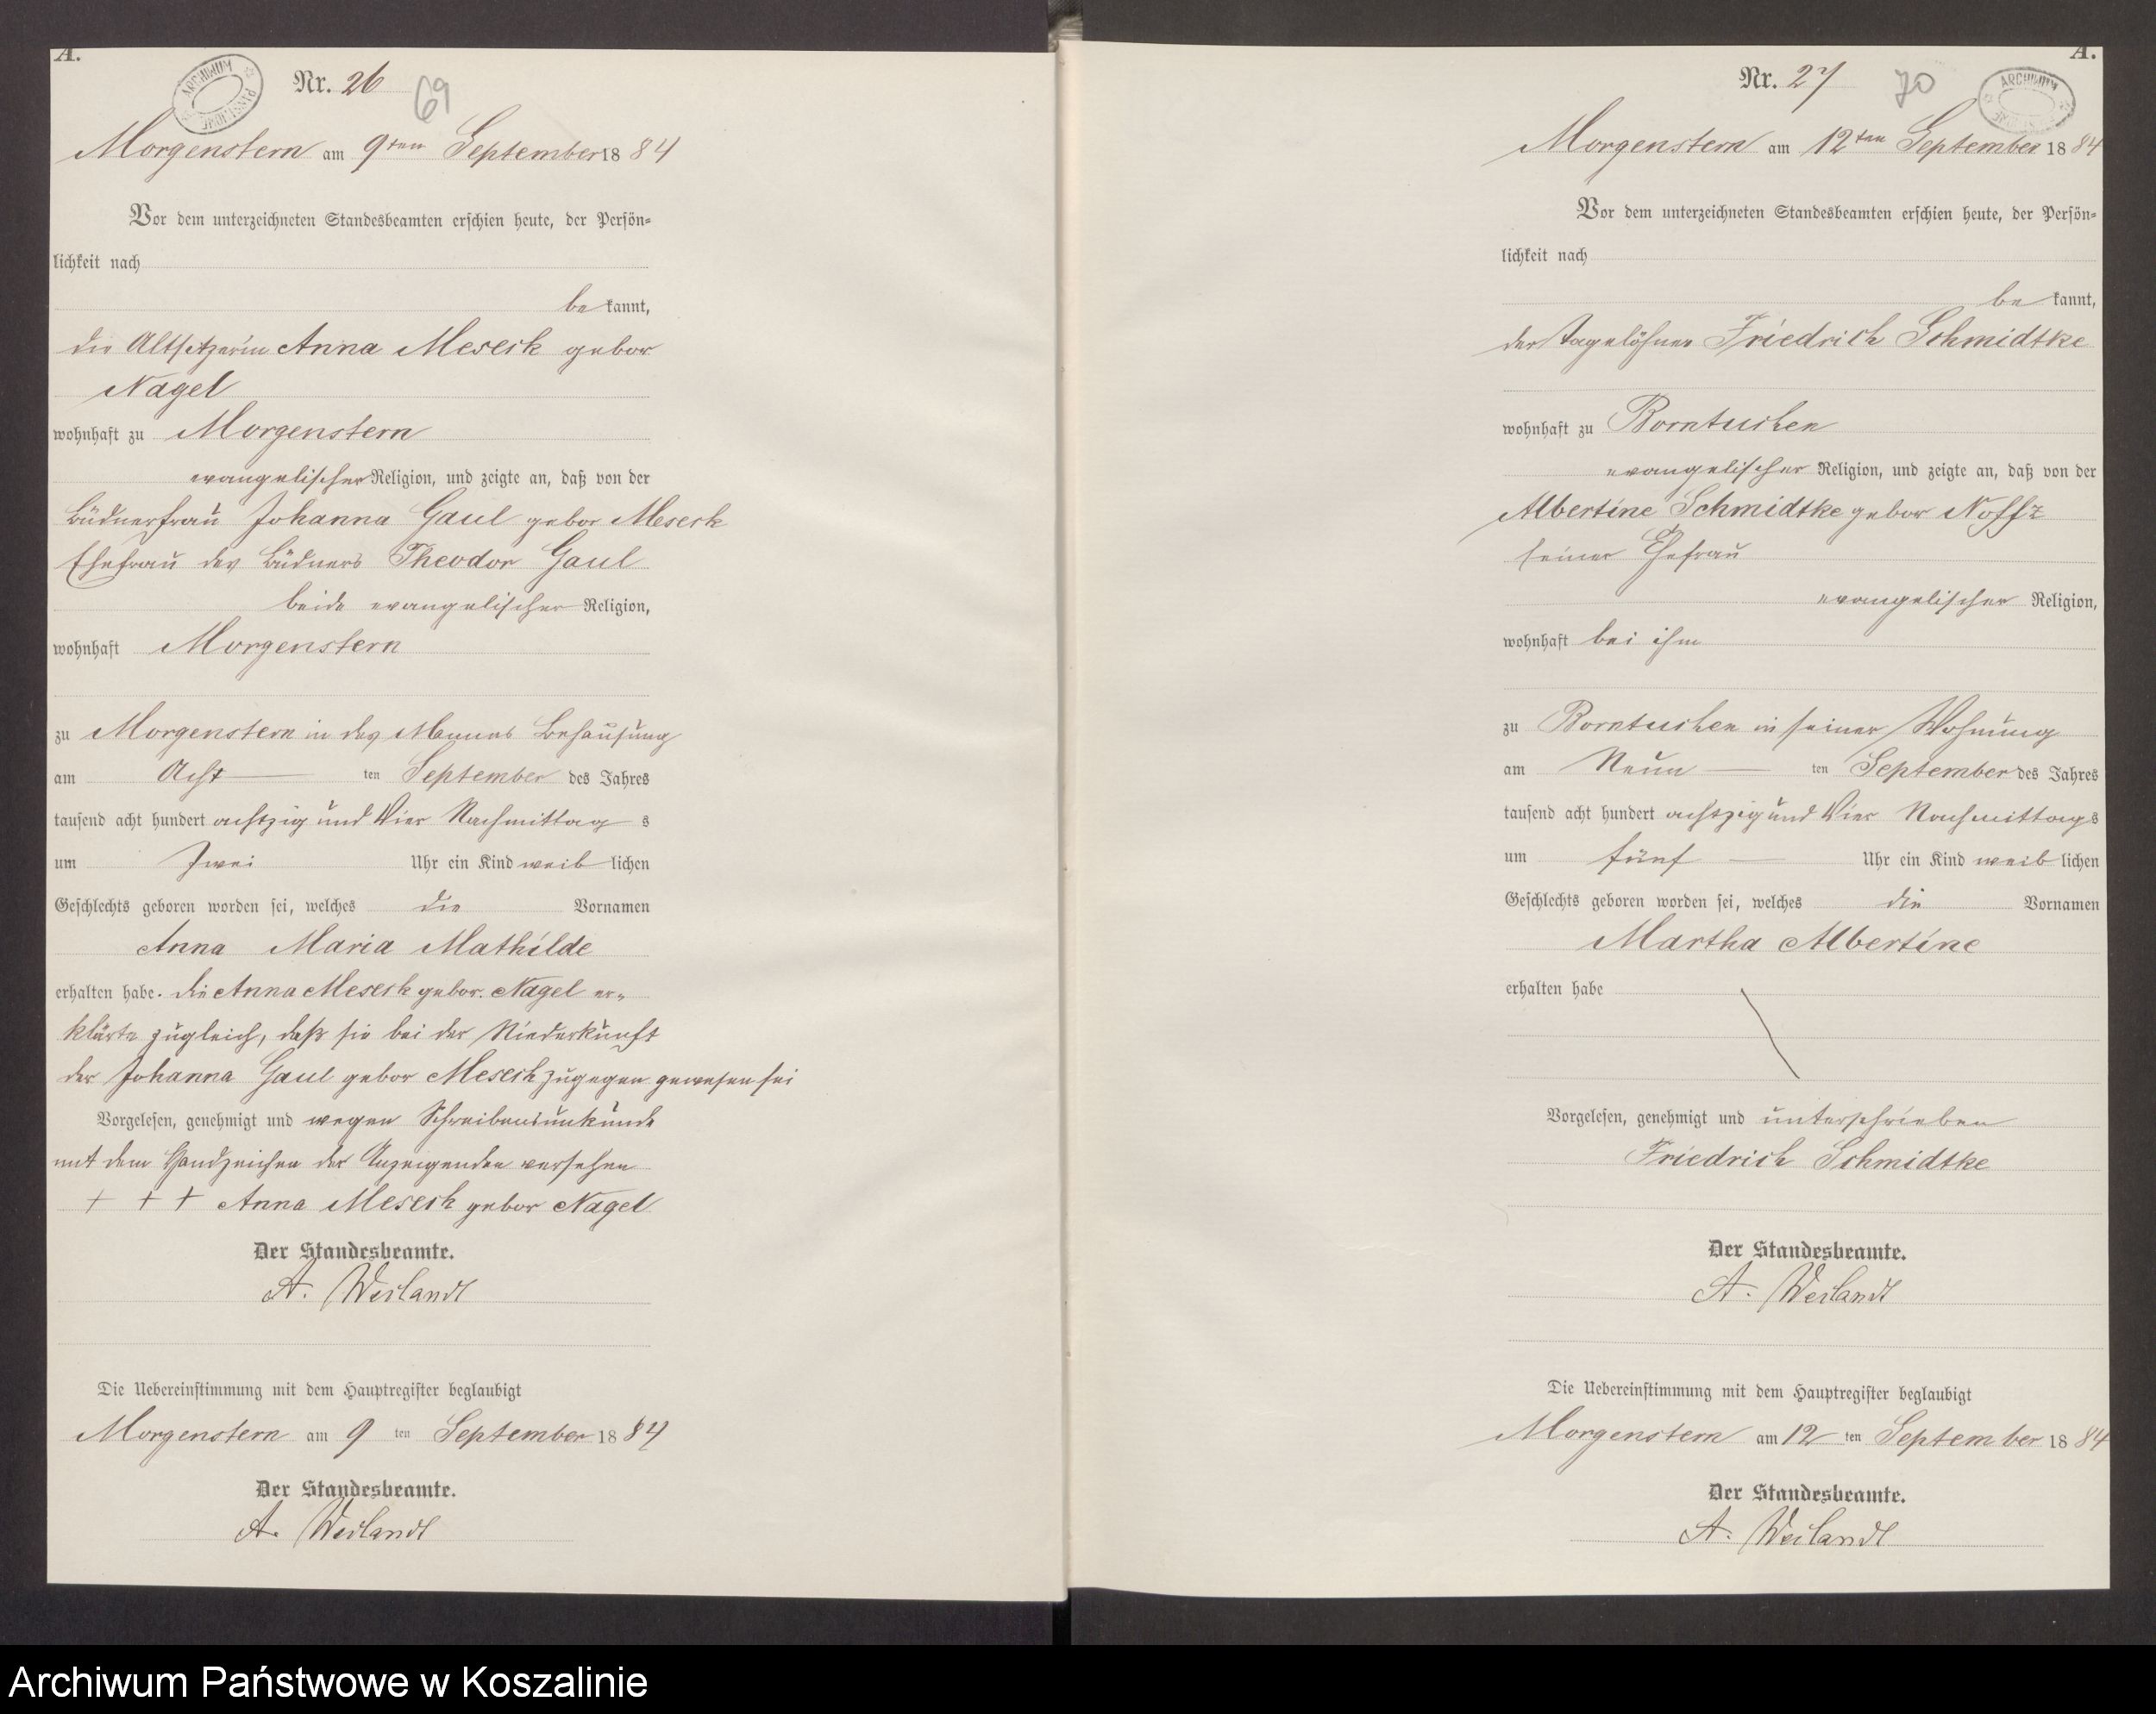 A.
ARCHIWUM PAŃSTWOWE
Nr. 26
69
Morgenstern am 9ten September 1884
Vor dem unterzeichneten Standesbeamten erschien heute, der Persön-
lichkeit nach
be kannt,
die Altsitzerin Anna Meseck gebor
Nagel
wohnhaft zu Morgenstern
evangelischer Religion, und zeigte an, daß von der
Büdnerfrau Johanna Gaul gebor Meseck
Ehefrau des Büdners Theodor Gaul
beide evangelischer Religion,
wohnhaft Morgenstern
zu Morgenstern in des Mannes Behausung
am Acht ten September des Jahres
tausend acht hundert achtzig und Vier Nachmittag s
um Zwei Uhr ein Kind weib lichen
Geschlechts geboren worden sei, welches die Vornamen
Anna Maria Mathilde
erhalten habe. die Anna Meseck gebor. Nagel er-
klärte zugleich, daß sie bei der Niederkunft
der Johanna Gaul gebor Meseck zugegen gewesen sei
Vorgelesen, genehmigt und wegen Schreibensunkunde
mit dem Handzeichen der Anzeigenden versehen
+ + + Anna Meseck gebor Nagel
Der Standesbeamte.
A. Weilandt
Die Uebereinstimmung mit dem Hauptregister beglaubigt
Morgenstern am 9 ten September 1884
Der Standesbeamte.
A. Weilandt
A.
Nr. 27
70
ARCHIWUM PAŃSTWOWE
Morgenstern am 12ten September 1884
Vor dem unterzeichneten Standesbeamten erschien heute, der Persön-
lichkeit nach
be kannt,
der Tagelöhner Friedrich Schmidtke
wohnhaft zu Borntuchen
evangelischer Religion, und zeigte an, daß von der
Albertine Schmidtke gebor Noffz
seiner Ehefrau
evangelischer Religion,
wohnhaft bei ihm
zu Borntuchen in seiner Wohnung
am Neun ten September des Jahres
tausend acht hundert achtzig und Vier Nachmittags
um fünf Uhr ein Kind weib lichen
Geschlechts geboren worden sei, welches die Vornamen
Martha Albertine
erhalten habe
Vorgelesen, genehmigt und unterschrieben
Friedrich Schmidtke
Der Standesbeamte.
A. Weilandt
Die Uebereinstimmung mit dem Hauptregister beglaubigt
Morgenstern am 12 ten September 1884
Der Standesbeamte.
A. Weilandt
Archiwum Państwowe w Koszalinie